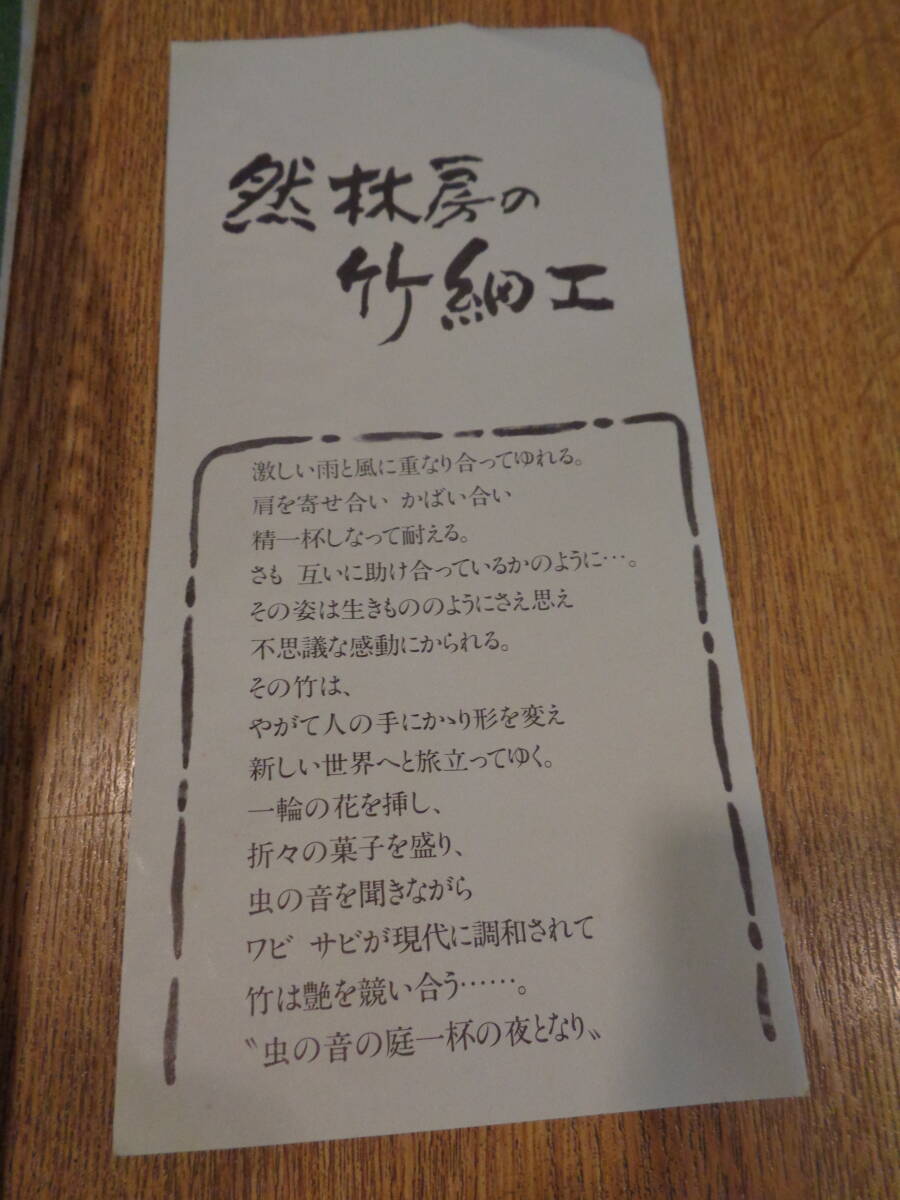 然林房の
竹細工
激しい雨と風に重なり合ってゆれる。
肩を寄せ合い かばい合い
精一杯しなって耐える。
さも 互いに助け合っているかのように…。
その姿は生きもののようにさえ思え
不思議な感動にかられる。
その竹は、
やがて人の手にかゝり形を変え
新しい世界へと旅立ってゆく。
一輪の花を挿し、
折々の菓子を盛り、
虫の音を聞きながら
ワビ サビが現代に調和されて
竹は艶を競い合う……。
〝虫の音の庭一杯の夜となり〟